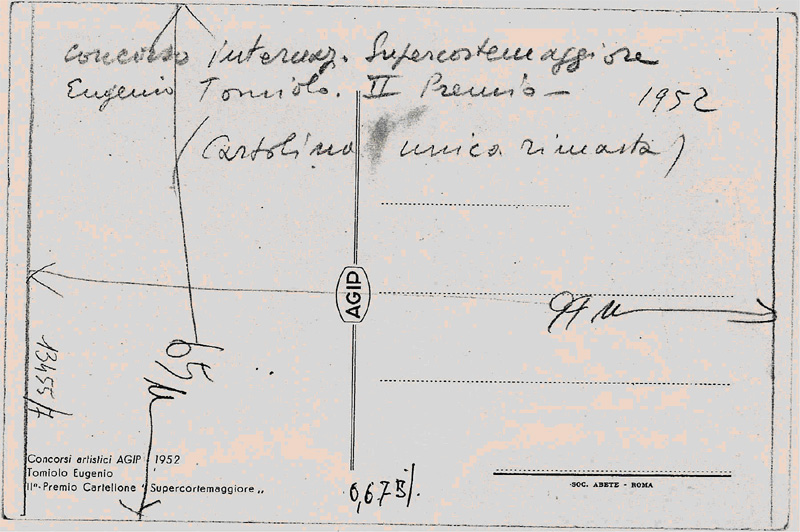 Concorso Internaz. Supercortemaggiore
Eugenio Tomiolo. II Premio —
1952
(Cartolina unica rimasta)
AGIP
65
13455/7
Concorsi artistici AGIP 1952
Tomiolo Eugenio
IIº-Premio Cartellone " Supercortemaggiore „
SOC. ABETE - ROMA